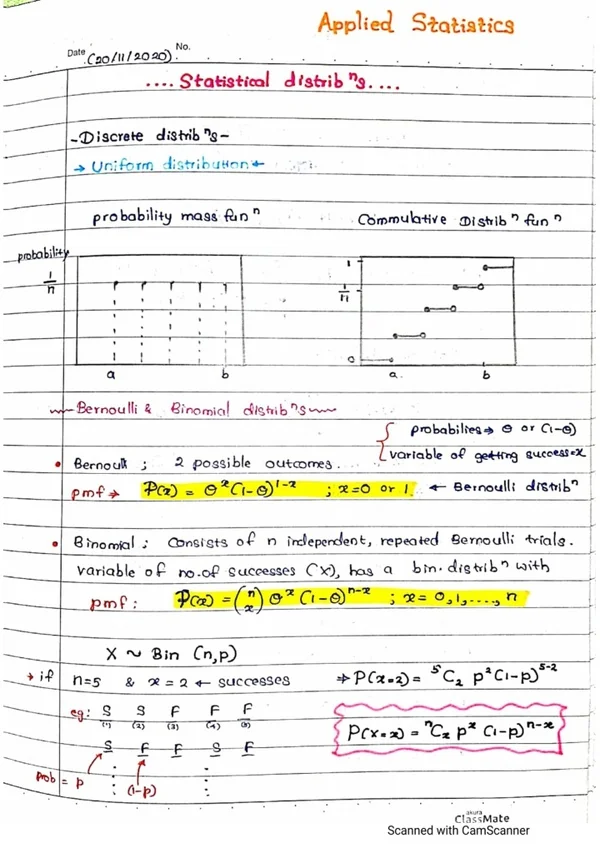 Applied Statistics
Date (20/11/2020) No.
.... Statistical distrib ⁿs. ...
-Discrete distrib ⁿs-
→ Uniform distribution ←
probability mass fun ⁿ
Commulative Distrib ⁿ fun ⁿ
probability
1/n
a b
1
1/n
0
a. b
Bernoulli & Binomial distrib ⁿs
{ probabilies → θ or (1-θ)
variable of getting success=x
• Bernoulli ; 2 possible outcomes.
pmf → P(x) = θˣ (1-θ)¹⁻ˣ ; x=0 or 1. ← Bernoulli distribⁿ
• Binomial ; Consists of n independent, repeated Bernoulli trials.
variable of no.of successes ('X), has a bin. distribⁿ with
pmf : P(x) = (n x) θˣ (1-θ)ⁿ⁻ˣ ; x= 0,1,....., n
X ~ Bin (n,p)
→ if n=5 & x = 2 ← successes ⇒ P(x=2) = ⁵C₂ p²(1-p)⁵⁻²
eg: S S F F F
(1) (2) (3) (4) (5)
P(X=x) = ⁿCₓ pˣ (1-p)ⁿ⁻ˣ
S F F S F
prob = p : (1-p) :
akura
ClassMate
Scanned with CamScanner